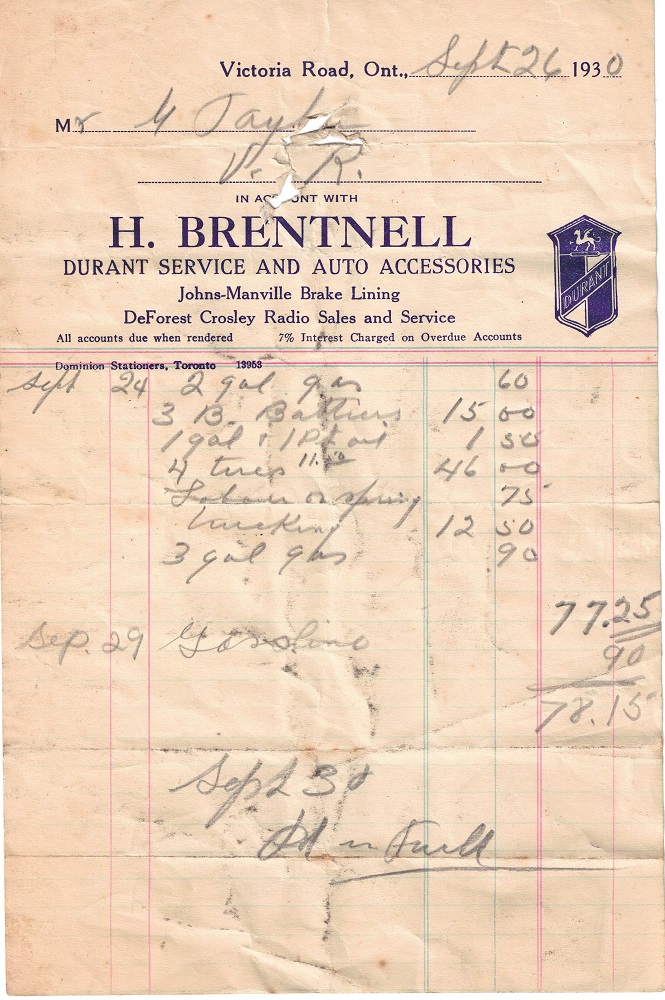 Victoria Road, Ont., Sept 26 1930
Mr Taylor
V. R.
IN ACCOUNT WITH
H. BRENTNELL
DURANT SERVICE AND AUTO ACCESSORIES
DURANT
Johns-Manville Brake Lining
DeForest Crosley Radio Sales and Service
All accounts due when rendered 7% Interest Charged on Overdue Accounts
Dominion Stationers, Toronto 13953
Sept 24 2 gal gas 60
3 B. Batteries 15 00
1 gal & 1 Pt oil 1 50
4 tires 11.50 46 00
Labour on spring 75
trucking 12 50
3 gal gas 90
77.25
Sep. 29 Gasoline 90
78.15
Sept 30
Pd in Full